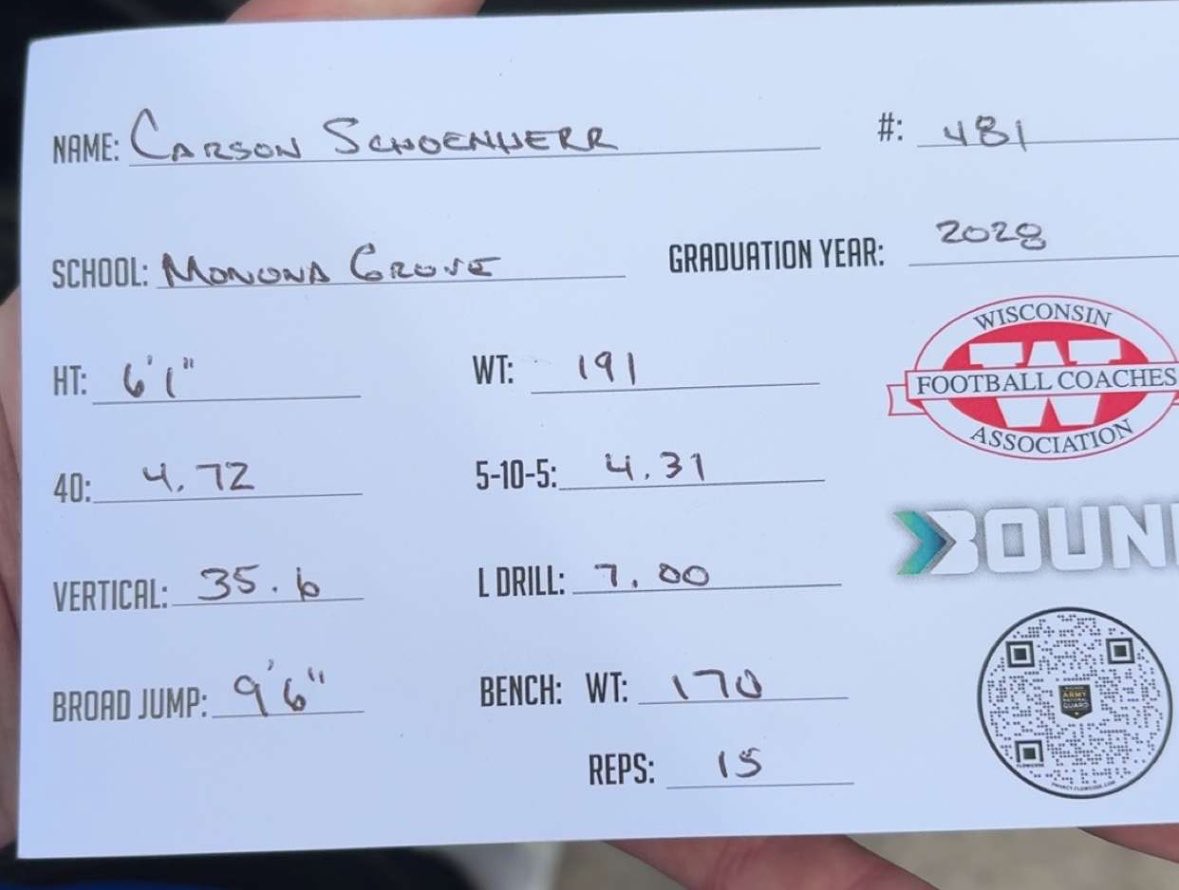 NAME: CARSON SCHOENHERR #: 481
SCHOOL: MONONA GROVE GRADUATION YEAR: 2028
HT: 6'1" WT: 191
WISCONSIN
FOOTBALL COACHES
ASSOCIATION
40: 4.72 5-10-5: 4.31
BOUN
VERTICAL: 35.6 L DRILL: 7.00
BROAD JUMP: 9'6" BENCH: WT: 170
ARMY
NATIONAL
GUARD
REPS: 15